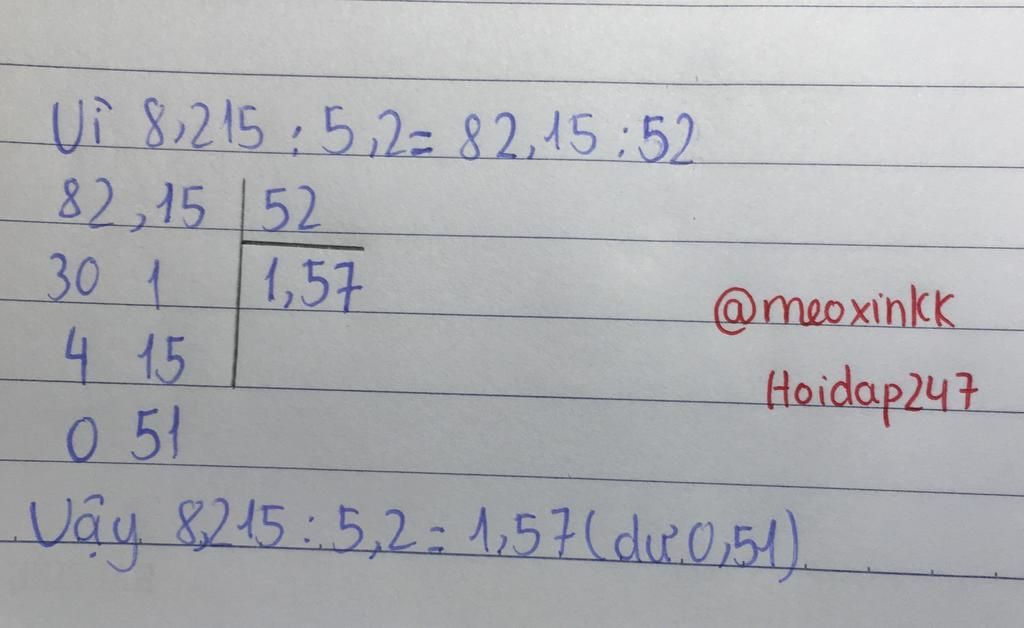 Vì 8,215 : 5,2 = 82,15 : 52
82,15 | 52
30 1 | 1,57
4 15
0 51
Vậy 8,215 : 5,2 = 1,57 (dư 0,51)
@meoxinkk
Hoidap247